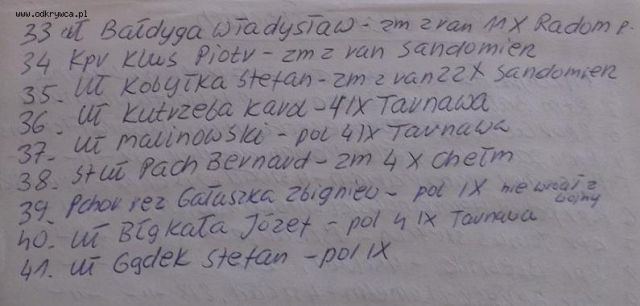 www.odkrywca.pl
33 uł Bałdyga Władysław - zm z ran 11 X Radom p.
34 Kpr Kluś Piotr - zm z ran Sandomierz
35. Uł Kobyłka Stefan - zm z ran 22 X Sandomierz
36. Uł Kutrzeba Karol - 4 IX Tarnawa
37. Uł Malinowski - pol 4 IX Tarnawa
38. St uł Pach Bernard - zm 4 X Chełm
39. Pchor rez Gałuszka Zbigniew - pol IX nie wrócił z wojny
40. Uł Błąkała Józef - pol 4 IX Tarnawa
41. Uł Gądek Stefan - pol IX